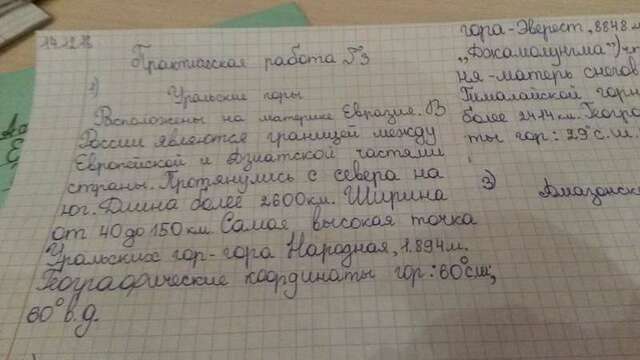 14.12.18
Практическая работа №3
1) Уральские горы
Расположены на материке Евразия. В
России являются границей между
Европейской и Азиатской частями
страны. Протянулись с севера на
юг. Длина более 2600км. Ширина
от 40 до 150 км. Самая высокая точка
Уральских гор - гора Народная, 1.894м.
Географические координаты гор: 60°сш;
60° в.д.
гора - Эверест, 8848 м
"Джамолунгма")
ня - матерь снегов
Гималайской горн
более 2414 км. Геогр
ты гор: 29° с. ш.
3) Амазонск